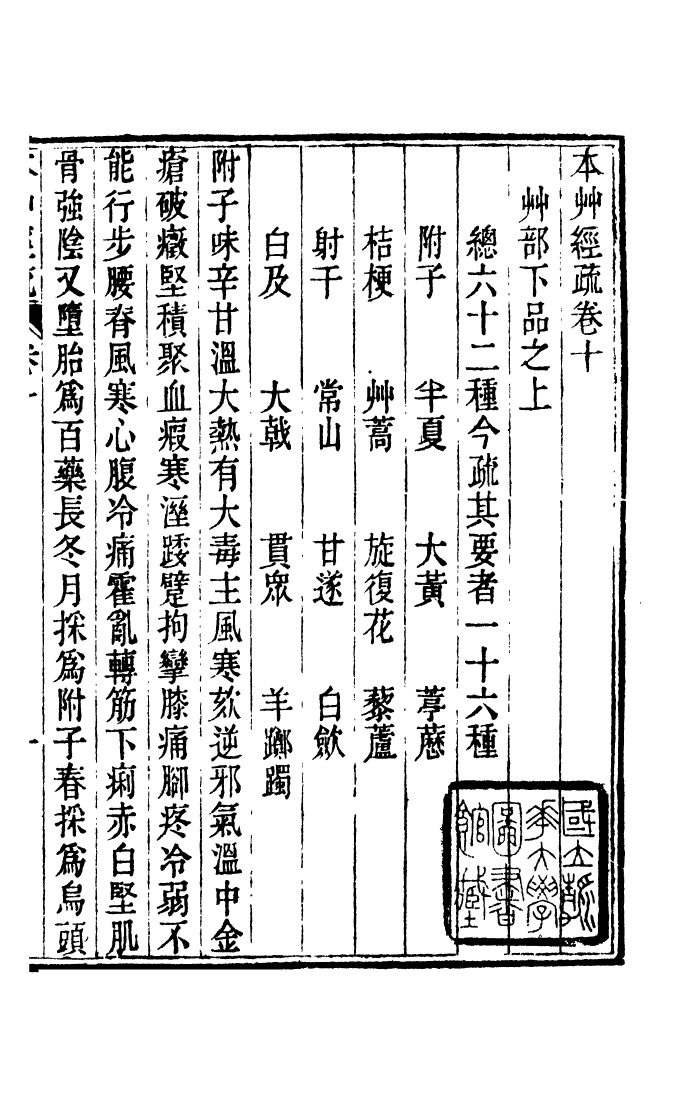 本艸經疏卷十
艸部下品之上
總六十二種今疏其要者一十六種
附子 半夏 大黃 葶藶
桔梗 艸蒿 旋復花 藜蘆
射干 常山 甘遂 白歛
白及 大戟 貫眾 羊躑躅
附子味辛甘溫大熱有大毒主風寒欬逆邪氣溫中金
瘡破癥堅積聚血瘕寒溼踒躄拘攣膝痛腳疼冷弱不
能行步腰脊風寒心腹冷痛霍亂轉筋下痢赤白堅肌
骨強陰又墮胎爲百藥長冬月採爲附子春採爲烏頭
國立清華大學圖書館藏
一